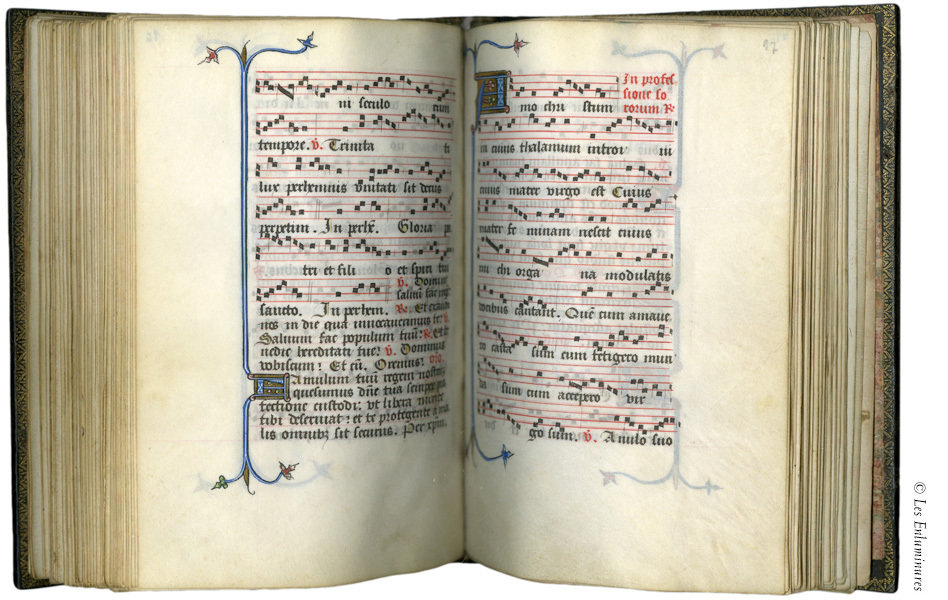 ni seculo num
tempore. v. Trinita ti
lux perhennis unitati sit decus
perpetim. In perhe. Gloria pa
tri et fili o et spiri tui
sancto. In perhem. v. Domine
salvum fac
R. Et exaudi
nos in die qua invocaverimus te. v.
Salvum fac populum tuum: R. Et be
nedic hereditati tue: v. Dominus
vobiscum: Et cum. Oremus: oro.
Famulum tuum regem nostrum
quesumus dne tua semper pro
tectione custodi: ut libera mente
tibi deserviat: et te protegente a ma
lis omnibz sit securus. Per xpm.
97
In profes
sione so
rorum R.
Amo chri stum
in cuius thalamum introi vi
cuius mater virgo est Cuius
pater fe minam nescit cuius
mi chi orga na modulatis
vocibus cantant. Quem cum amave
ro casta sum cum tetigero mun
da sum cum accepero vir
go sum. v. Anulo suo
© Les Enluminures